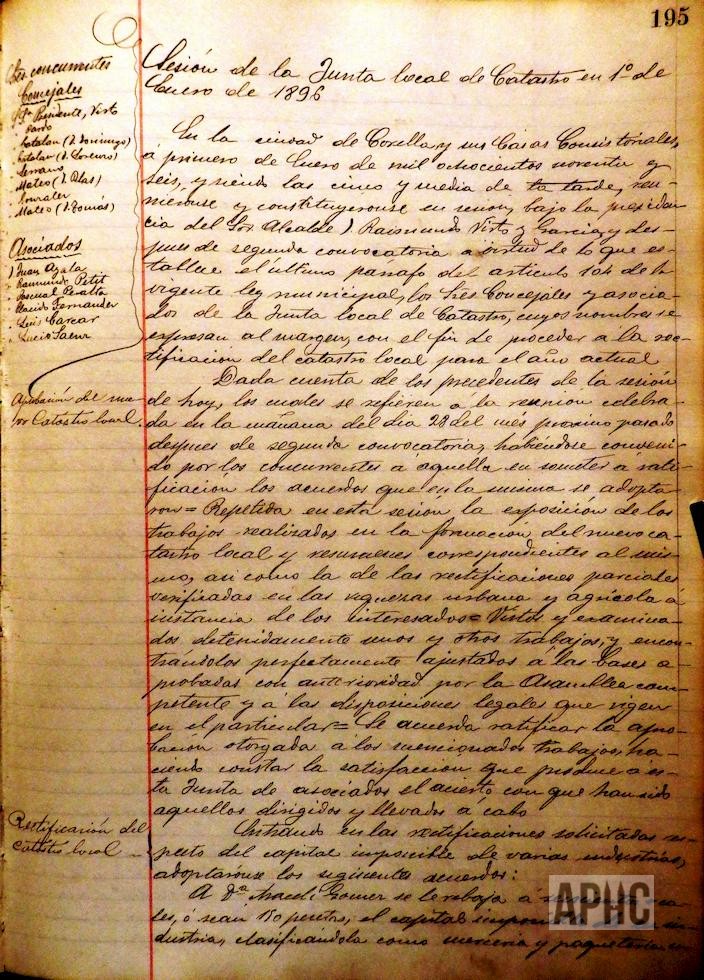 195
Sres concurrentes
Concejales
Sr. Presidente, Virto
Pardo
Catalan (D. Domingo)
Catalan (D. Lorenzo)
Serrano
Mateo (D. Blas)
Gonzalez
Mateo (D. Tomás)
Asociados
D. Juan Ayala
Raimundo Petit
Pascual Peralta
Placido Fernandez
Luis Garcar
Lucio Saenz
Aprobación del nue-
vo Catastro local.
Rectificación del
Catastro local
Sesión de la Junta local de Catastro en 1º de
Enero de 1896
En la ciudad de Corella y sus Casas Consistoriales,
á primero de Enero de mil ochocientos noventa y
seis, y siendo las cinco y media de la tarde, reu-
nieronse y constituyeronse en sesion, bajo la presiden-
cia del Sor. Alcalde D. Raimundo Virto y Garcia, y des-
pues de segunda convocatoria a virtud de lo que es-
tablece el último parrafo del articulo 104 de la
vigente ley municipal, los Sres Concejales y asocia-
dos de la Junta local de Catastro, cuyos nombres se
expresan al margen, con el fin de proceder á la rec-
tificacion del catastro local para el año actual
Dada cuenta de los precedentes de la sesión
de hoy, los cuales se refieren á la reunion celebra-
da en la mañana del dia 28 del més proximo pasado
despues de segunda convocatoria, habiéndose conveni-
do por los concurrentes a aquella en someter á rati-
ficacion los acuerdos que en la misma se adopta
ron = Repetida en esta sesion la exposición de los
trabajos realizados en la formación del nuevo ca-
tastro local y resumenes correspondientes al mis-
mo, asi como la de las rectificaciones parciales
verificadas en las riquezas urbana y agricola á
instancia de los interesados = Vistos y examina-
dos detenidamente unos y otros trabajos, y encon-
trándolos perfectamente ajustados á las bases a-
probadas con anterioridad por la Asamblea com-
petente y á las disposiciones legales que rigen
en el particular = Se acuerda ratificar la apro-
bacion otorgada á los mencionados trabajos, ha-
ciendo constar la satisfaccion que produce á es-
ta Junta de asociados el acierto con que han sido
aquellos dirigidos y llevados á cabo
Entrando en las rectificaciones solicitadas res-
pecto del capital imponible de varias industrias,
adoptaronse los siguientes acuerdos:
A Dª Araceli Gomez se le rebaja á
les, ó sean 150 pesetas, el capital
dustria, clasificándola como merceria y paqueteria
APHC